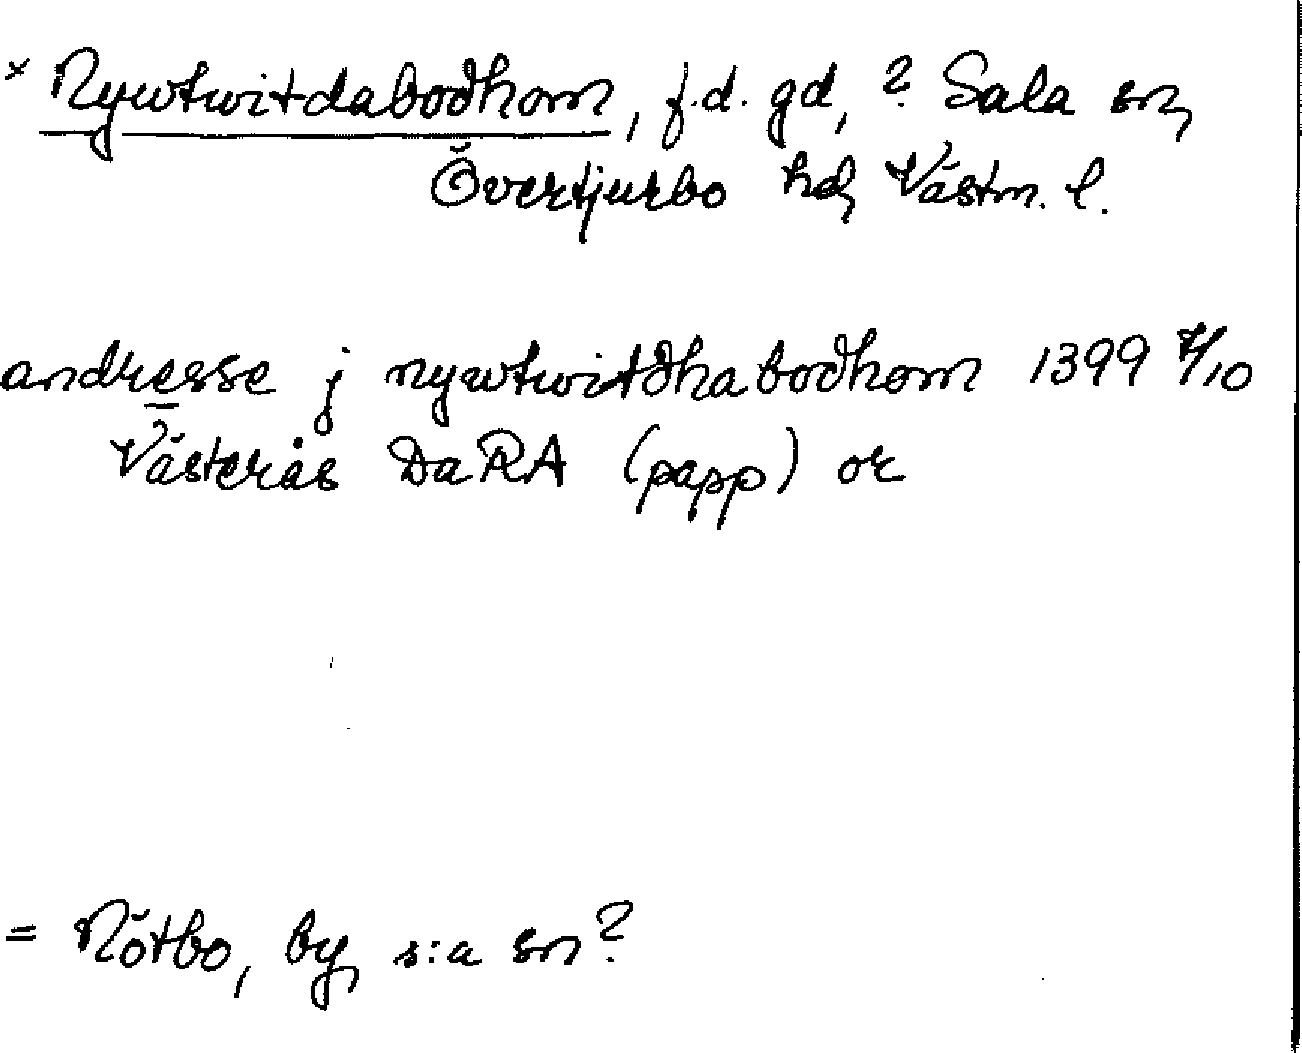 × Nywtwitdaboðhom, f.d. gd, ? Sala sn,
Övertjurbo hd, Västm. l.
andresse j nywtwitðhaboðhom 1399 7/10
Västerås DaRA (papp) or
= Nötbo, by, s:a sn?